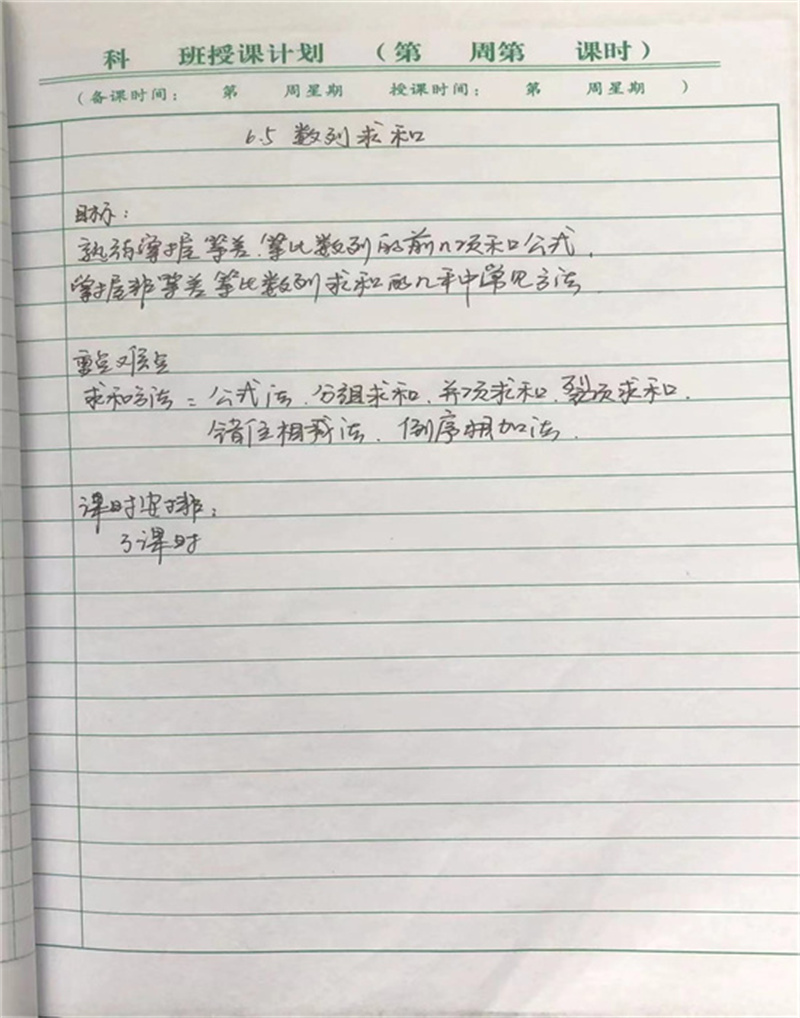 科 班授课计划 (第 周第 课时)
(备课时间: 第 周星期 授课时间: 第 周星期 )
6.5 数列求和
目标:
熟练掌握等差.等比数列的前n项和公式.
掌握非等差等比数列求和的几种常见方法
重点难点
求和方法: 公式法.分组求和.并项求和.裂项求和.
错位相减法.倒序相加法.
课时安排:
3课时